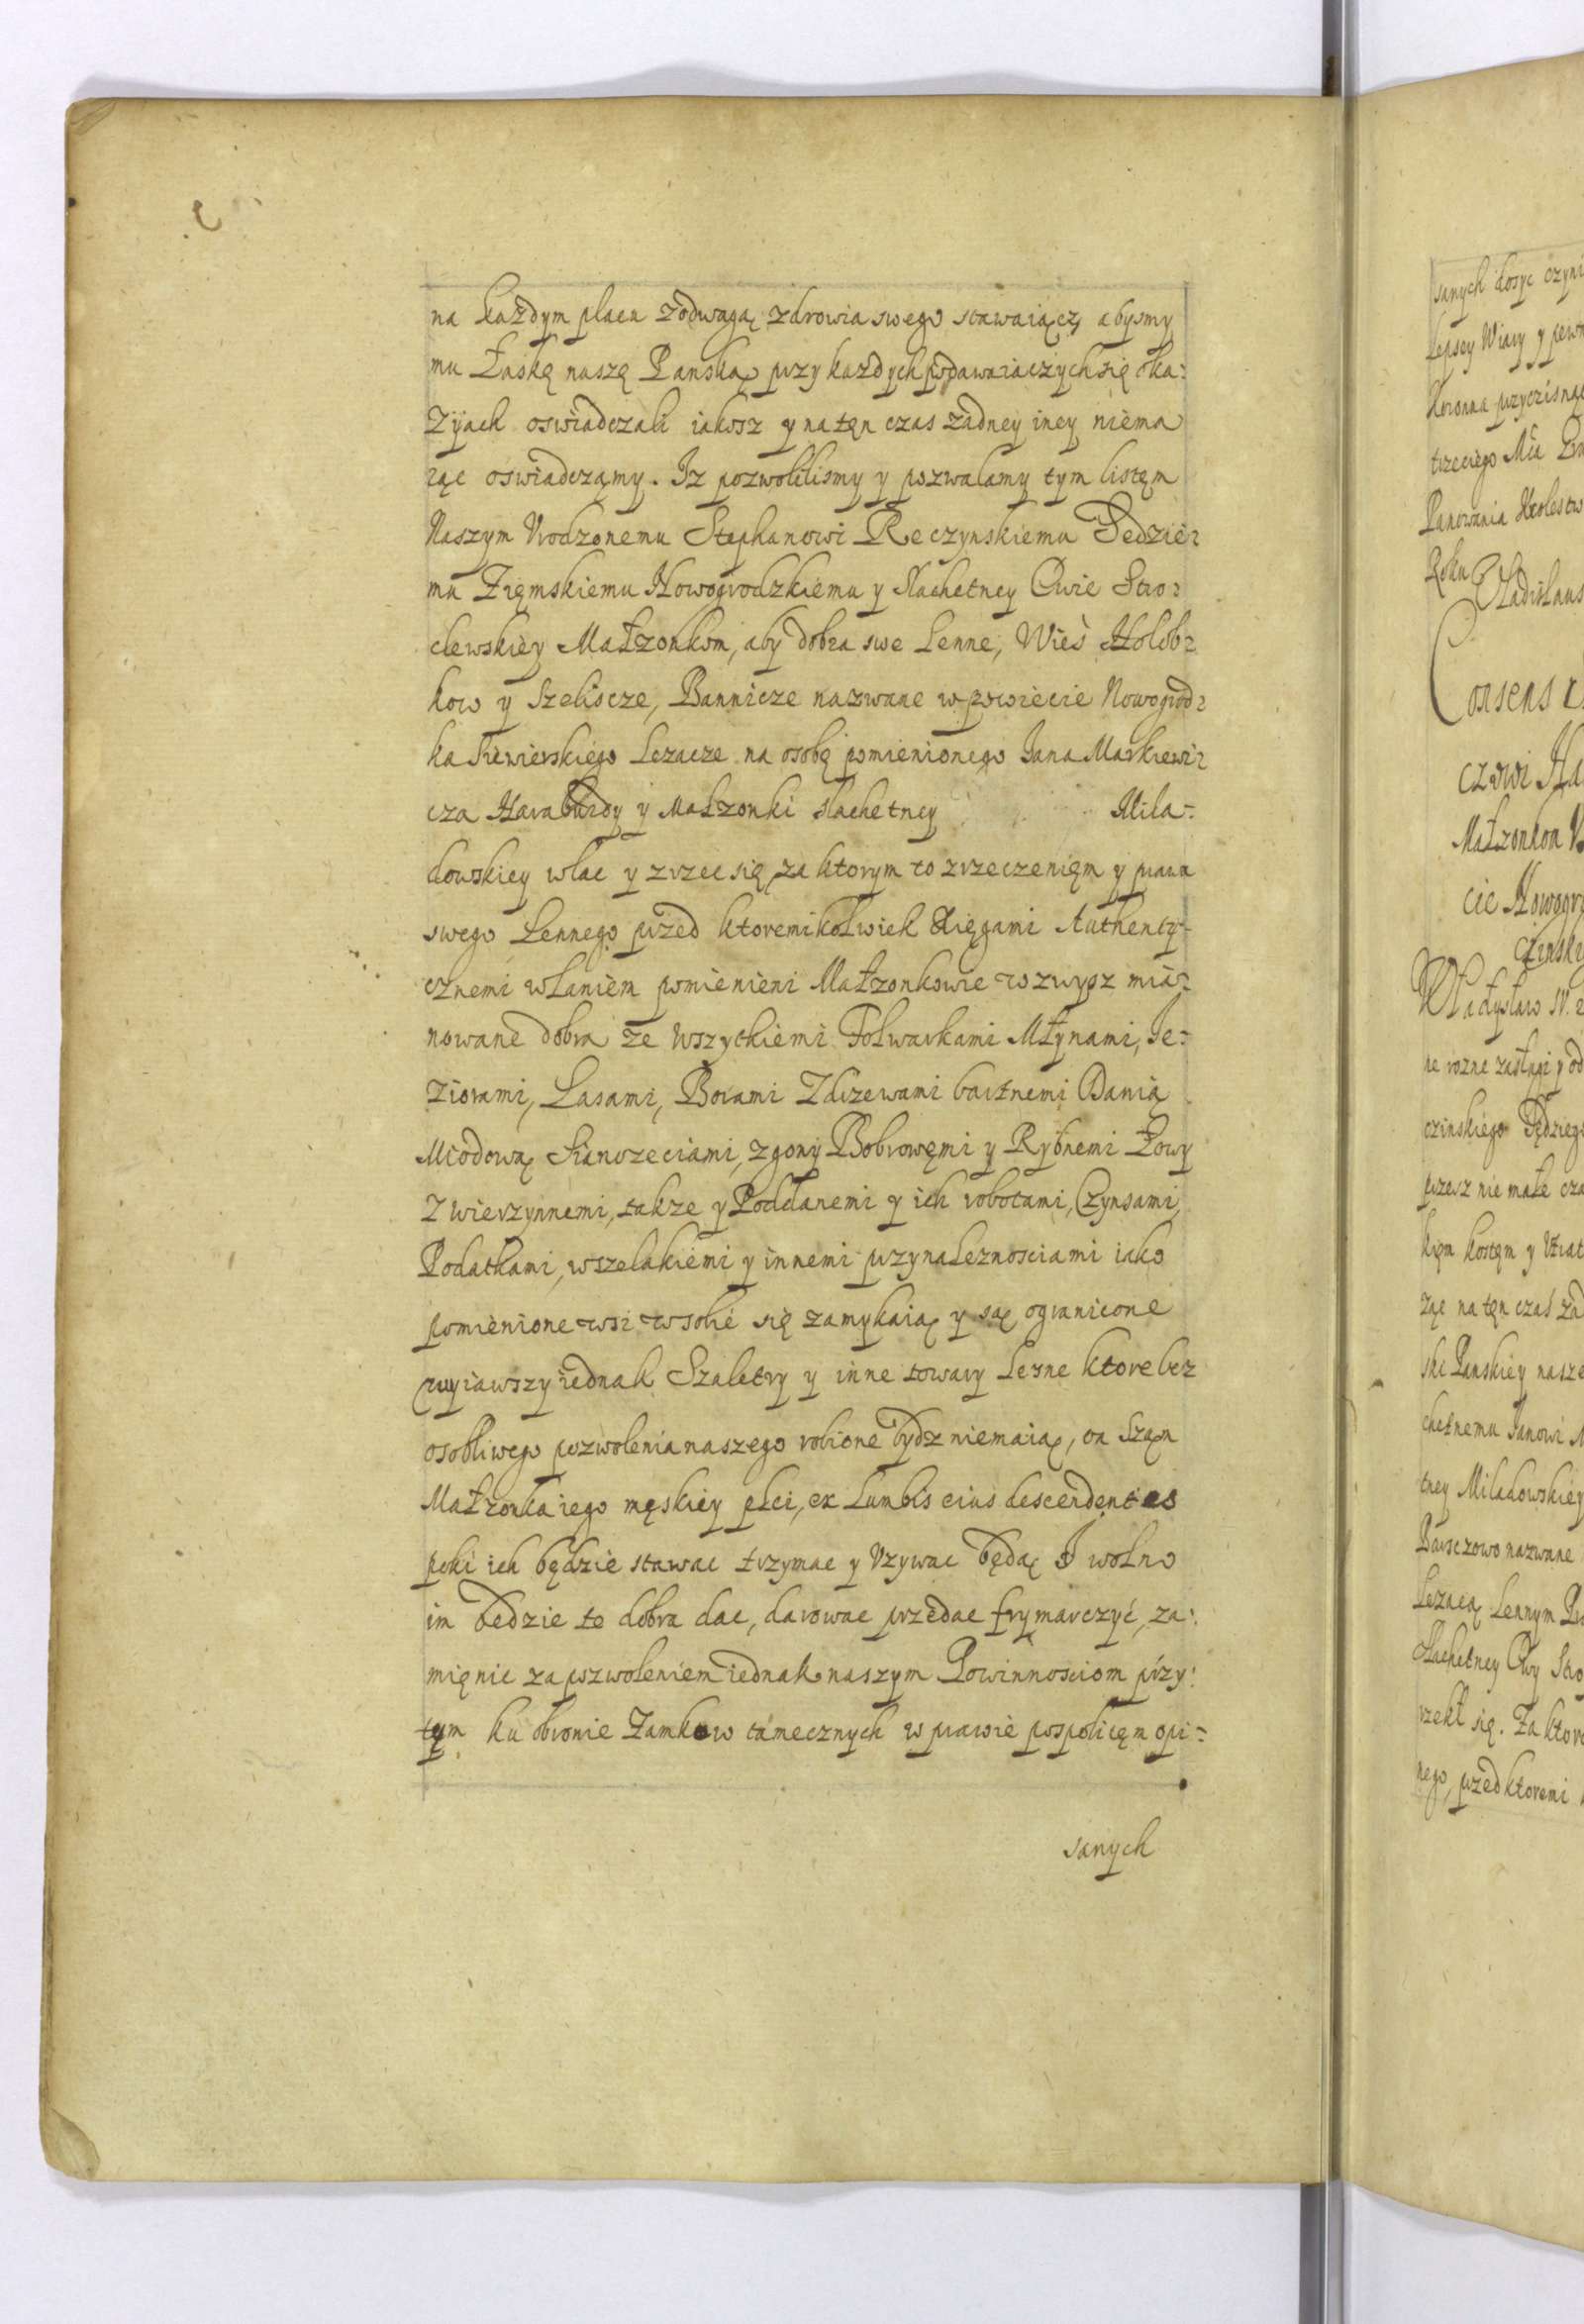 na każdym placu z odwagą zdrowia swego stawaiącz, abysmy
mu Łaskę naszę Panską przy kazdych podawaiaczych się oka:
zÿach oswiadczali iakosz y na tęn czas żadney iney niema
iąc oswiadczamy. Iz pozwolilismy y pozwalamy tym listęm
Naszym Vrodzonemu Stephanowi Reczynskiemu Sedzie:
mu Zięmskiemu Nowogrodzkiemu y Slachetney Ewie Stro:
clewskiey Małzonkom, aby dobra swe Lenne, Wieś Holob:
kow y Szeliscze, Bannicze nazwane w powiecie Nowogrod:
ka Siewierskiego Lezacze na osobę pomienionego Jana Markiewi:
cza Haraburdy y Małzonki slachetney Mila-
dowskiey wlac y zrzec się, za ktorym to zrzeczenięm y prawa
swego Lennego przed ktoremikolwiek Xięgami Authenty-
cznemi wlaniem pomienieni Małzonkowie wzwysz mia-
nowane dobra ze wszyckiemi Folwarkami Młynami, Je-
ziorami, Lasami, Borami Zdrzewami bartnemi Danią
Miodową Sianozeciami, zgony Bobrowęmi y Rybnemi Łowy
Zwierzynnemi, takze y Poddanemi y ich robotami, Czynsami,
Podatkami, wszelakiemi y innemi przynaleznosciami iako
pomienione wsi w sobie się zamykaią y są ogranicone
wyiawszy iednak Szaletry y inne towary Lesne ktore bez
osobliwego pozwolenia naszego robione bydz niemaią, on Sząm
Małzonka iego męskiey płci, ex Lumbis eius descendentes
poki ich będzie stawac trzymac y Vzywac będą I wolno
im bedzie te dobra dac, darowac przedac frymarczyć, za:
mięnic za pozwoleniem iednak naszym Powinnosciom przy:
tym ku obronie Zamkow tamecznych w prawie pospolitęm opi-
sanych
sanych dosyc czyni
Lepsey Wiary y pewn
Koronna przycisnąc
trzeciego Mca
Panowania Krolestw
Roku
Vladislaus
Consens
czowi Ha
Małzonkom
cie Nowogro
czinski
Władysław IV.
ne rozne zasługi y od
czinskiego Sędzieg
przesz nie małe cza
kięm kosztęm y Vtrat
żąc na tęn czas żad
ski Panskiey nasze
chetnemu Janowi M
tney Miladowskiey
nazwane
Lezacą Lennym Pr
Slachetney Ewy Stro
rzekł się. Za ktor
nego, przed ktoremi